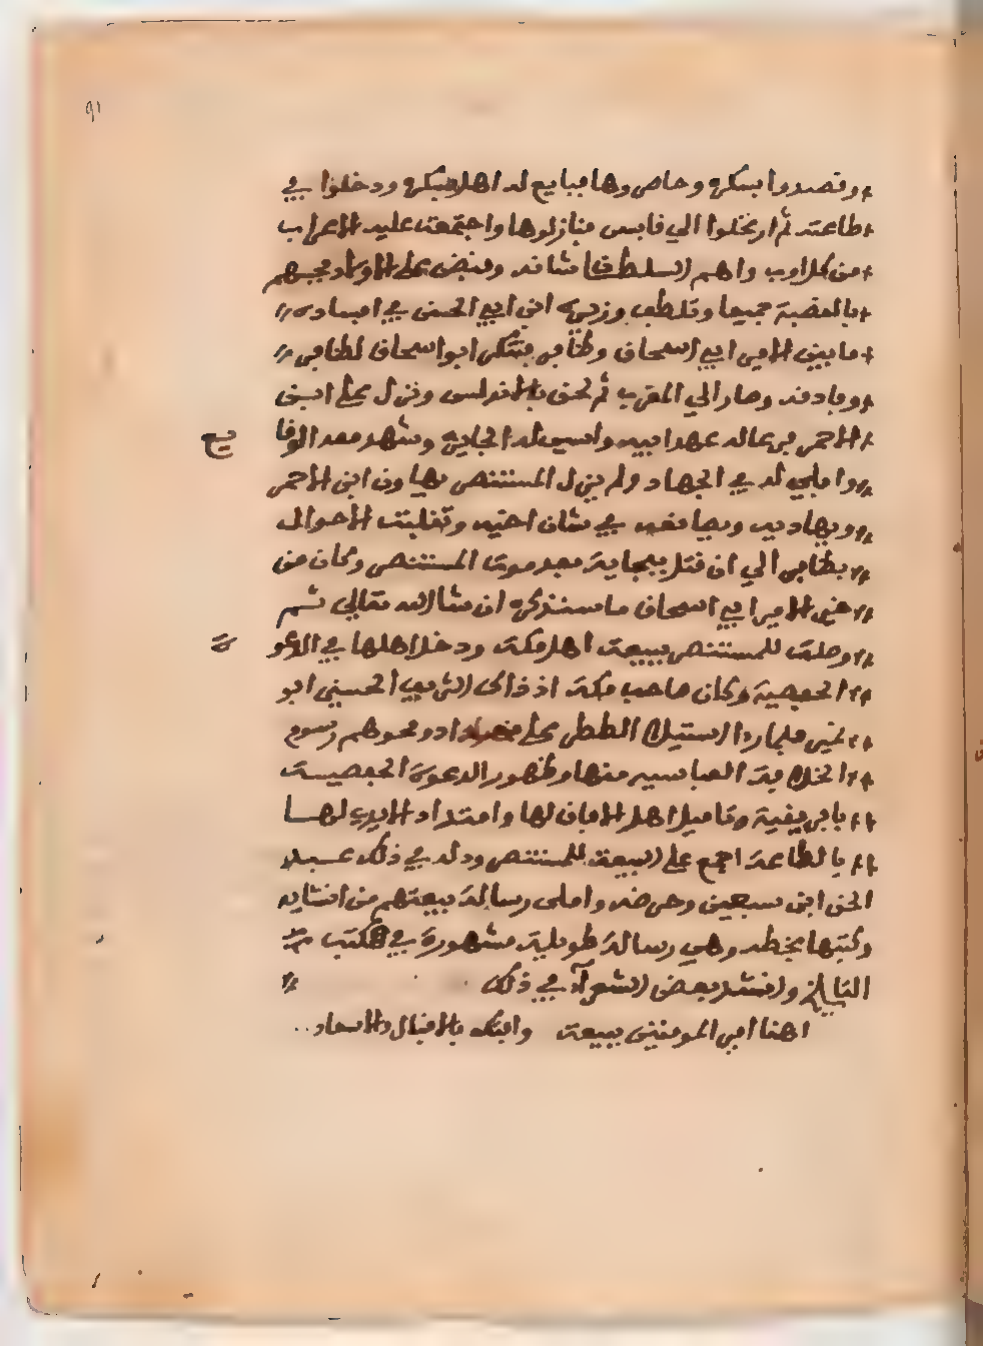 ٩١
وقصدوا بسكره وحاصروها فبايع له اهل بسكره ودخلوا في
طاعته ثم ارتحلوا الي قابس فنازلوها واجتمعت عليه الاعراب
من كل اوب واهم السلطان شانه وقبض على اولاده فحبسهم
بالقصبة جميعا وتلطف وزيره ابن ابي الحسن في افساد
ما بين الامير ابي اسحاق وظافر فتنكر ابو اسحاق لظافر
وفارقه وصار الي المغرب ثم لحق بالاندلس ونزل على ابن
الاحمر فرعا له عهد ابيه واسنى له الجايزه وشهد معه الوقا
يع
وابلي له في الجهاد ولم يزل المستنصر يهاون ابن الاحمر
ويهاديه ويصانعه في شان اخيه وتقلبت الاحوال
بظافر الي ان قتل ببجاية بعد موت المستنصر وكان من
خبر الامير ابي اسحاق ما سنذكره ان شا الله تعالي ثم
وصلت للمستنصر ببيعة اهل مكة ودخل اهلها في الدعو
ة
الحفصية وكان صاحب مكة اذ ذاك الشريف الحسني ابو
نمي فلما را استيلا الططر على بغداد ومحوهم رسوم
الخلافة العباسيه منها وظهور الدعوة الحفصيـة
بافريقية وتاميل اهل الافاق لها وامتداد الايدي لها
بالطاعة اجمع على البيعة للمستنصر ودله في ذلك عبد
الحق ابن سبعين وحرضه واملى رسالة بيعتهم من انشايه
وكتبها بخطه وهي رسالة طويلة مشهورة في كتب
التاريخ وانشد بعض الشعرآ في ذلك
اهنا امير المومنين ببيعة وافتك بالاقبال والاسعاد